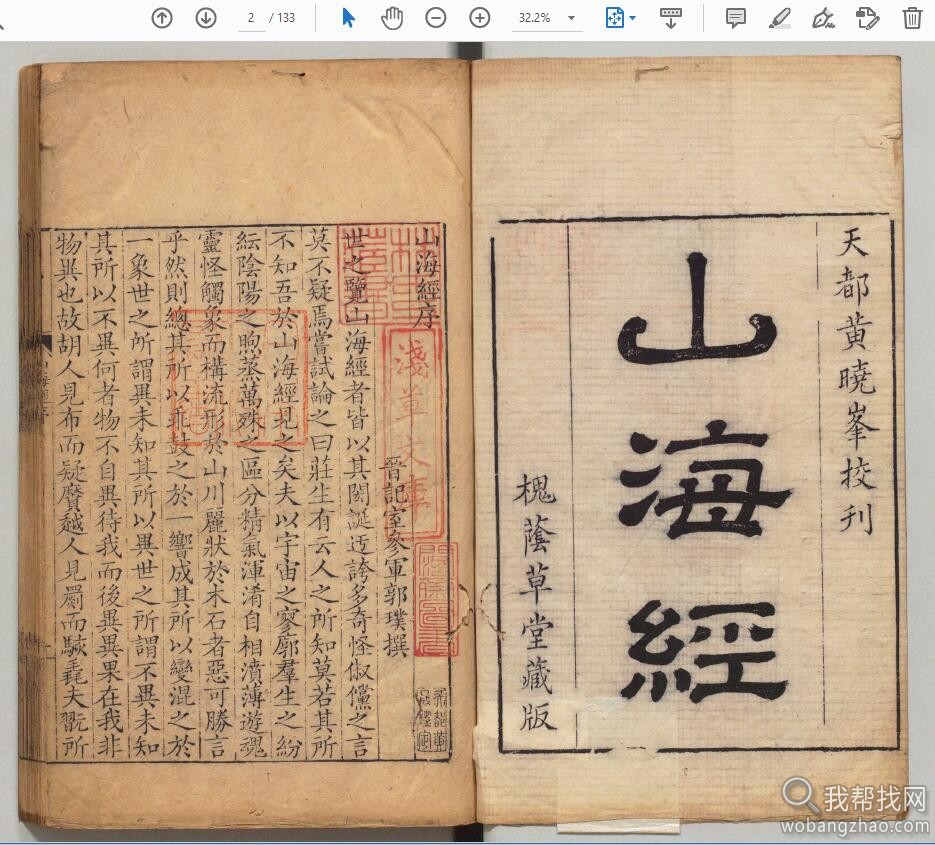 2 / 133
32.2%
天都黃曉峯挍刊
山海經
槐蔭草堂藏版
山海經序
晉記室參軍郭璞撰
世之覽山海經者皆以其閎誕迂誇多奇怪俶儻之言
莫不疑焉嘗試論之曰莊生有云人之所知莫若其所
不知吾於山海經見之矣夫以宇宙之寥廓羣生之紛
紜陰陽之煦蒸萬殊之區分精氣渾淆自相濆薄遊魂
靈怪觸象而構流形於山川麗狀於木石者惡可勝言
乎然則總其所以乖鼓之於一響成其所以變混之於
一象世之所謂異未知其所以異世之所謂不異未知
其所以不異何者物不自異待我而後異異果在我非
物異也故胡人見布而疑黂越人見罽而駭毳夫翫所
淺草文庫
我帮找网
wobangzhao.com